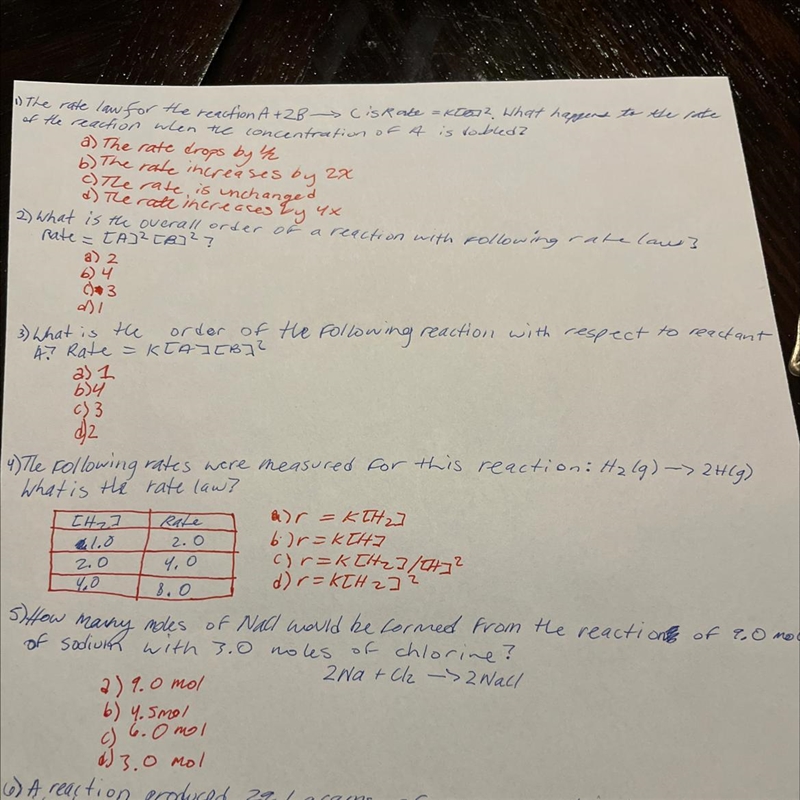 1) The rate law for the reaction A + 2B → C is Rate = K[B]². What happens to the rate
of the reaction when the concentration of A is doubled?
a) The rate drops by 1/2
b) The rate increases by 2x
c) The rate is unchanged
d) The rate increases by 4x
2) What is the overall order of a reaction with following rate laws?
Rate = [A]²[B]²?
a) 2
b) 4
c) 3
d) 1
3) What is the order of the following reaction with respect to reactant
A? Rate = K[A][B]²
a) 1
b) 4
c) 3
d) 2
4) The following rates were measured for this reaction: H₂(g) → 2H(g)
What is the rate law?
[H₂] Rate
1.0 2.0
2.0 4.0
4.0 8.0
a) r = K[H₂]
b) r = K[H]
c) r = K[H₂]/[H]²
d) r = K[H₂]²
5) How many moles of NaCl would be formed from the reaction of 9.0 mol
of sodium with 3.0 moles of chlorine?
2Na + Cl₂ → 2NaCl
a) 9.0 mol
b) 4.5 mol
c) 6.0 mol
d) 3.0 mol
6) A reaction produced